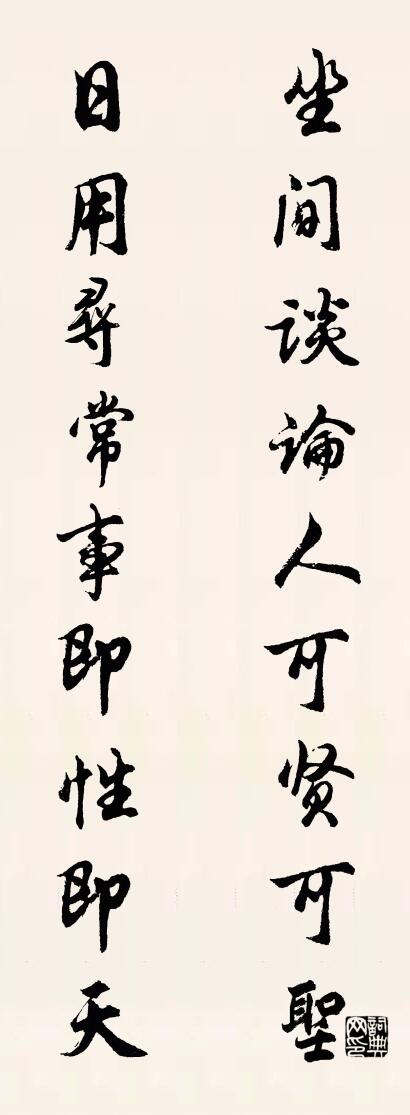 坐间谈論人可贤可聖
日用尋常事即性即天
詞典网印